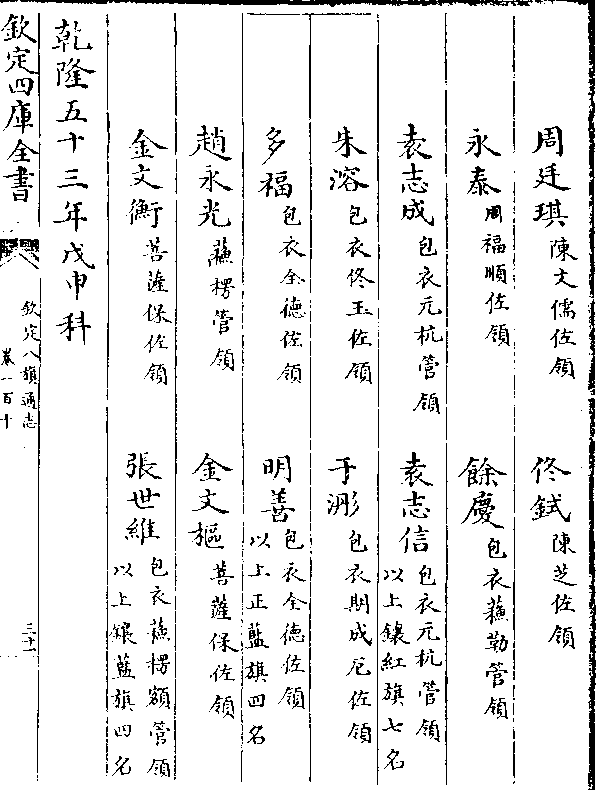 周廷琪陳文儒佐領　佟鉽陳芝佐領
永泰周福順佐領　餘慶包衣蘓勒管領
袁志成包衣元杭管領　袁志信包衣元杭管領以上鑲紅旗七名
朱溶包衣佟玉佐領　于浵包衣期成厄佐領
多福包衣全德佐領　明善包衣全德佐領以上正藍旗四名
趙永光蘓楞管領　金文樞菩薩保佐領
金文衡菩薩保佐領　張世維包衣蘓楞額管領以上鑲藍旗四名
乾隆五十三年戊申科
欽定四庫全書
欽定八旗通志
卷一百十